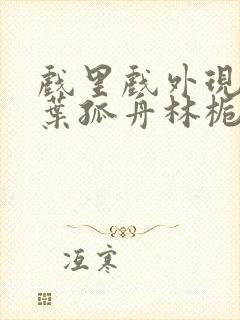 戲里戲外現
葉孤舟林栀
冱寒